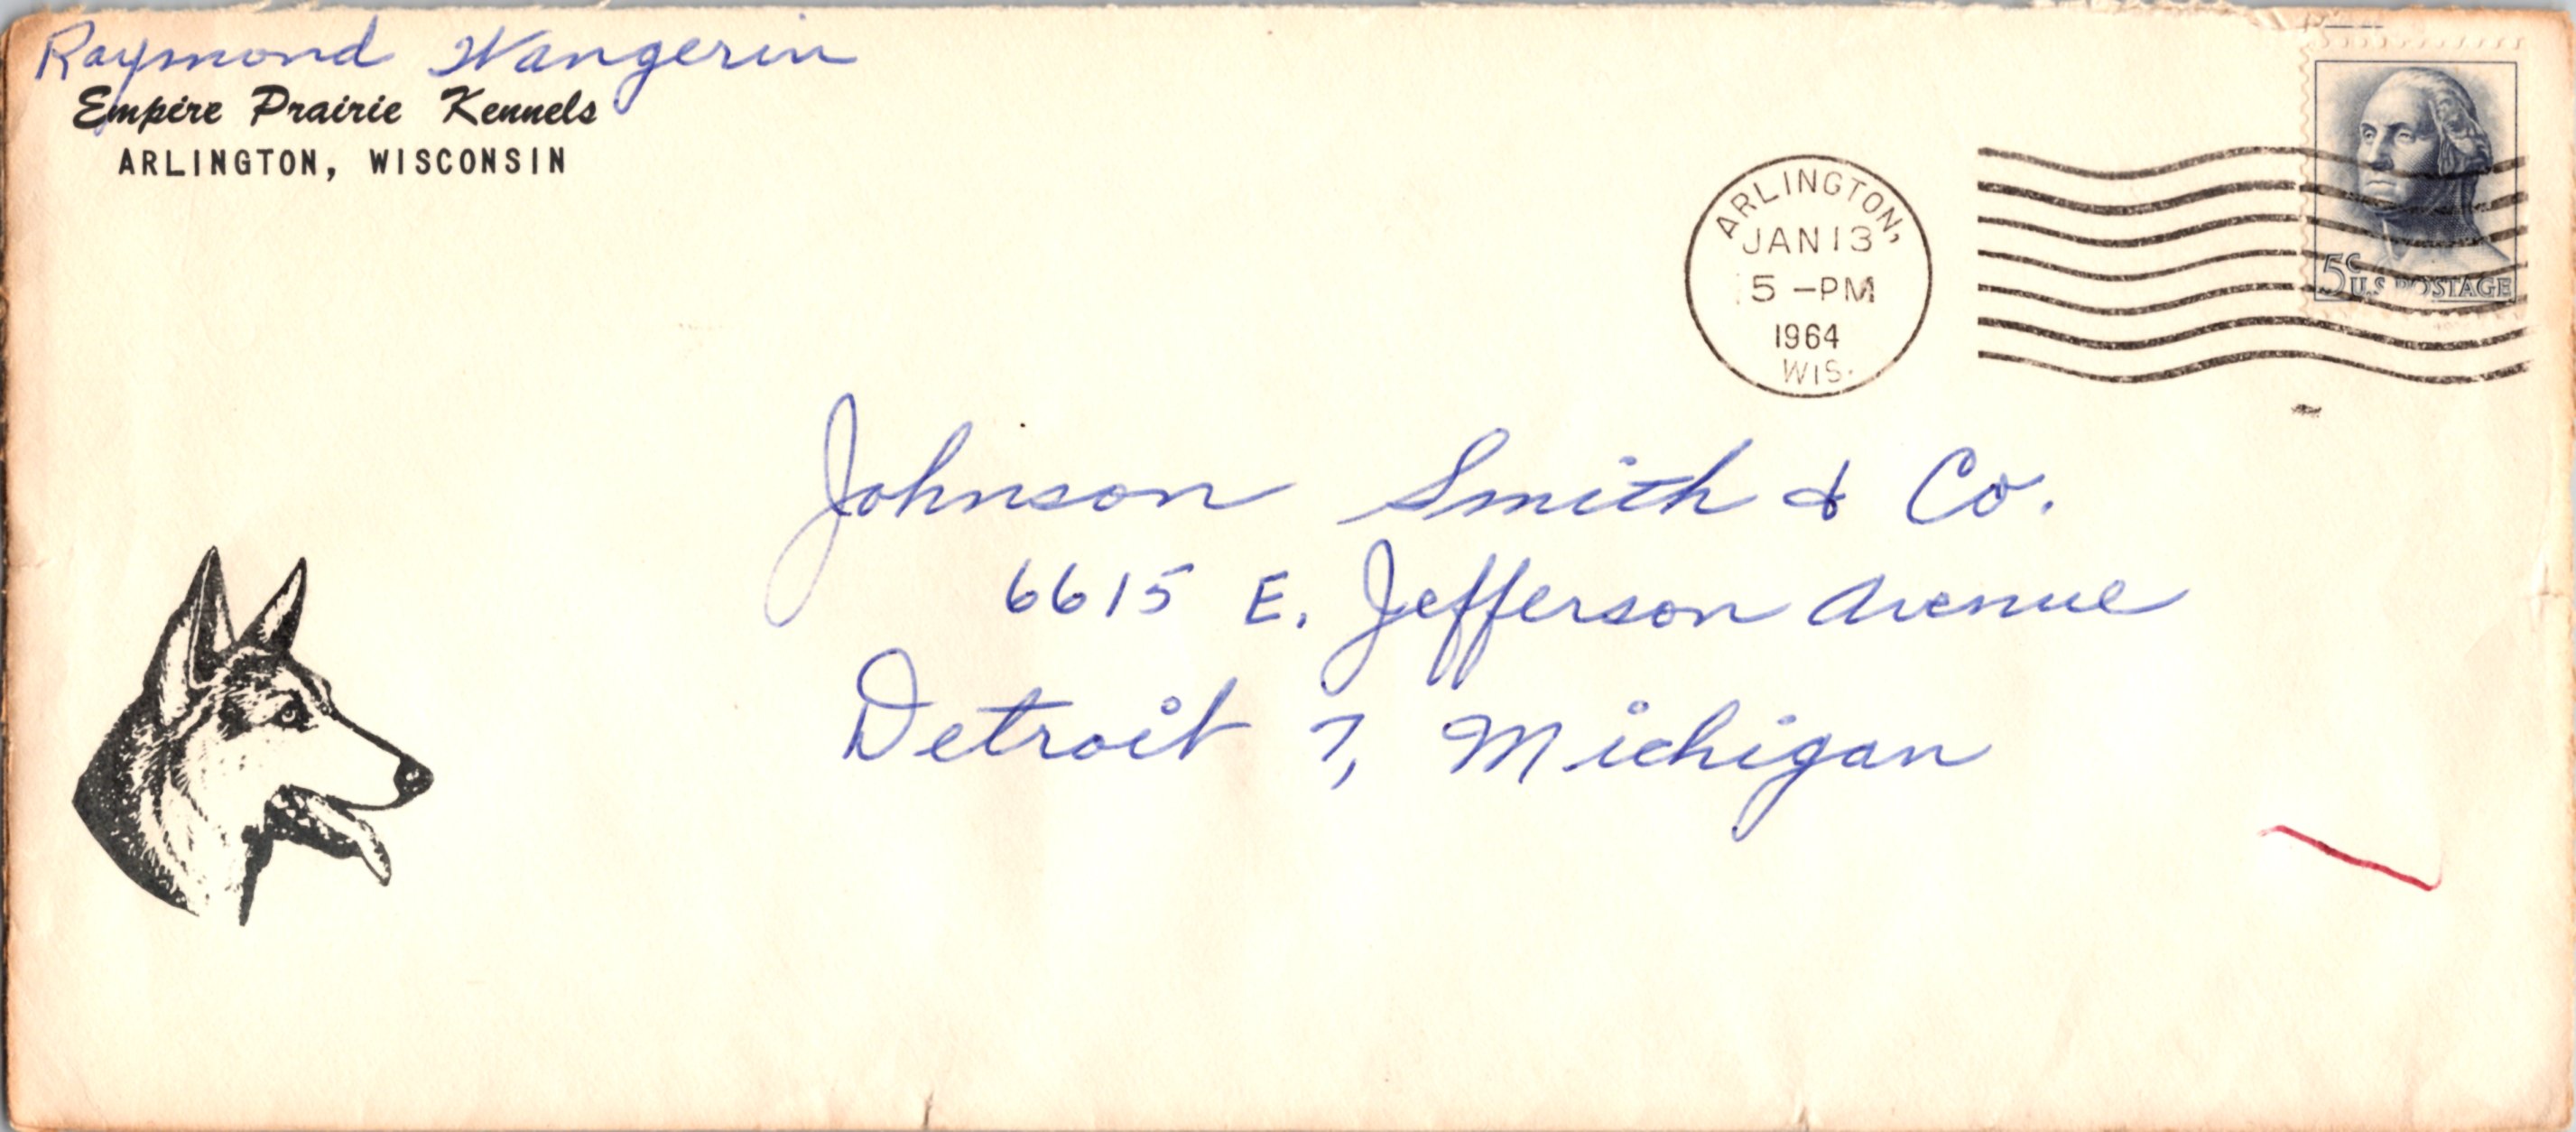 Raymond Wangerin
Empire Prairie Kennels
ARLINGTON, WISCONSIN
ARLINGTON,
JAN 13
5 -PM
1964
WIS.
5c
U.S. POSTAGE
Johnson Smith & Co.
6615 E. Jefferson Avenue
Detroit 7, Michigan